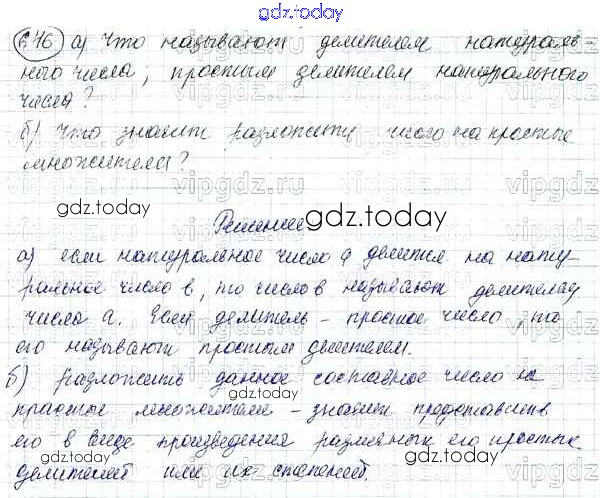 gdz.today
676 а) Что называют делителем натураль-
ного числа; простым делителем натурального
числа?
б) Что значит разложить число на простые
множители?
gdz.today
gdz.today
Решение
а) если натуральное число а делится на нату-
ральное число в, то число в называют делителем
числа а. Если делитель - простое число, то
его называют простым делителем.
б) разложить данное составное число на
простые множители - значит представить
его в виде произведения различных его простых
делителей или их степеней.
gdz.today
gdz.today
gdz.today
vipgdz.ru